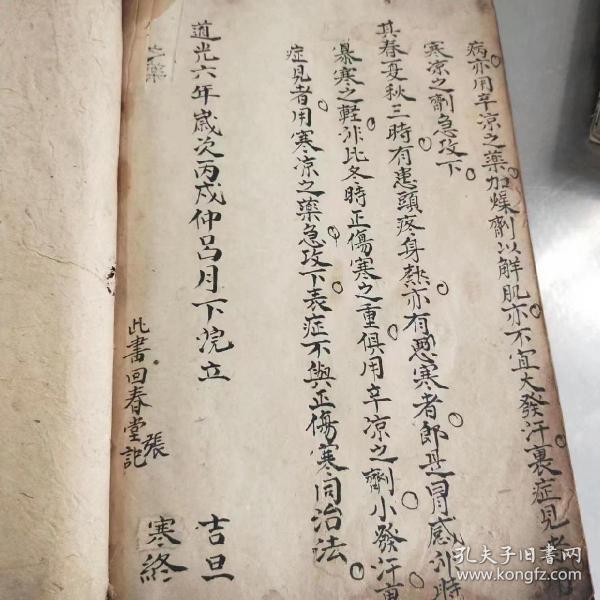 病亦用辛凉之藥加燥劑以解肌亦不宜大發汗裏症見者用
寒凉之劑急攻下
其春夏秋三時有患頭疼身熱亦有惡寒者郎是冒感非時
暴寒之軽非比冬時正傷寒之重俱用辛凉之劑小發汗裏
症見者用寒凉之藥急攻下表症不與正傷寒同治法
道光六年歲次丙戌仲呂月下浣立 吉旦
之藥
此書回春堂張記
寒終
孔夫子旧书网
www.kongfz.com